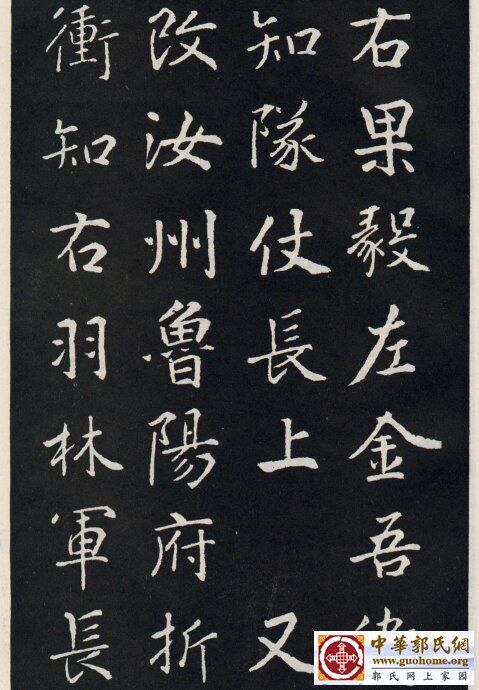 右果毅左金吾
知隊仗長上 又
改汝州魯陽府折
衝知右羽林軍長
中華郭氏網
www.guohome.org
郭氏网上家园